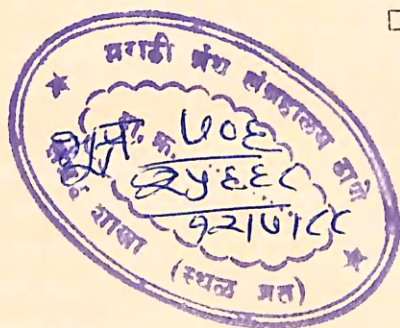 मराठी ग्रंथ संग्रहालय ठाणे
क्र. ७०६
२५६६८
१२।७।८८
शाखा (स्थळ प्रत)